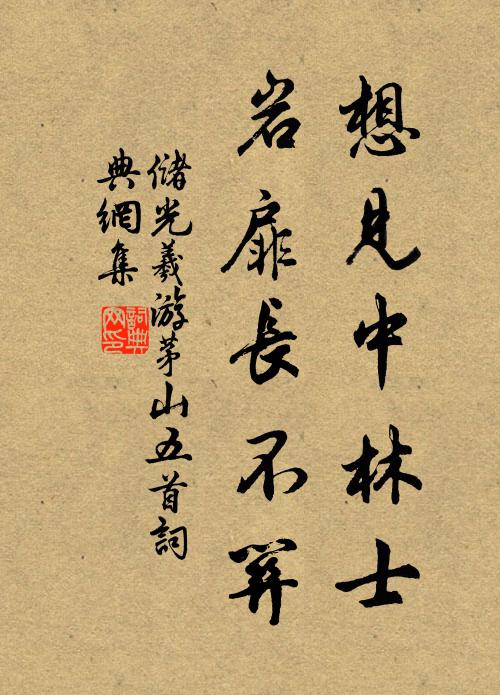 想見中林士
岩扉長不關
儲光羲游茅山五首詞
典網集
詞典
网印